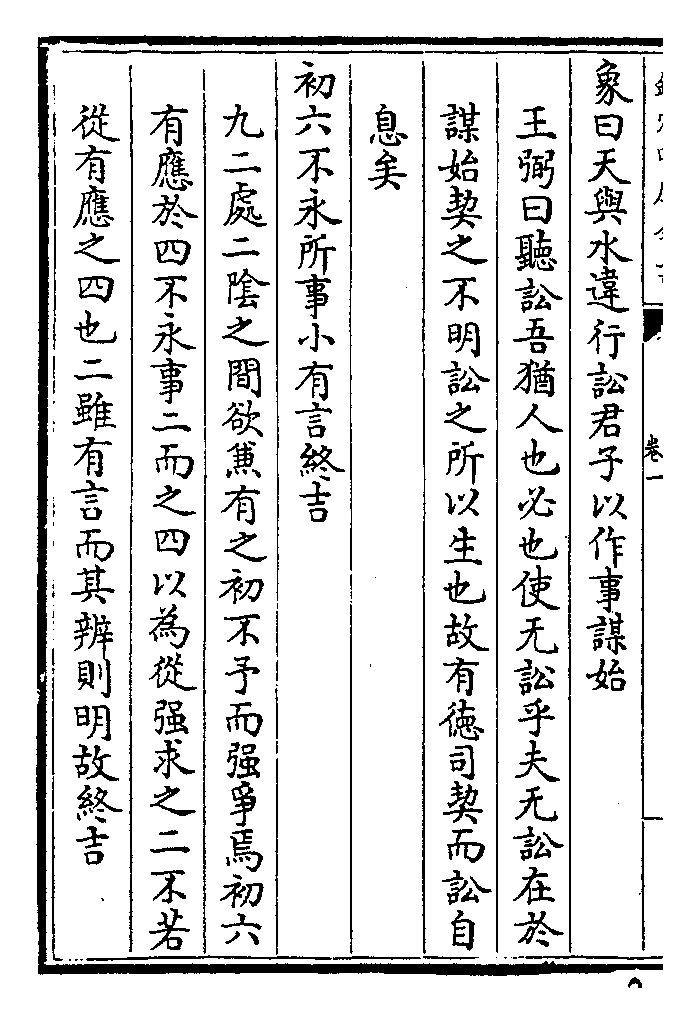 象曰天與水違行訟君子以作事謀始
王弼曰聽訟吾猶人也必也使无訟乎夫无訟在於
謀始契之不明訟之所以生也故有徳司契而訟自
息矣
初六不永所事小有言終吉
九二處二隂之間欲兼有之初不予而强爭焉初六
有應於四不永事二而之四以為從强求之二不若
從有應之四也二雖有言而其辨則明故終吉
卷一